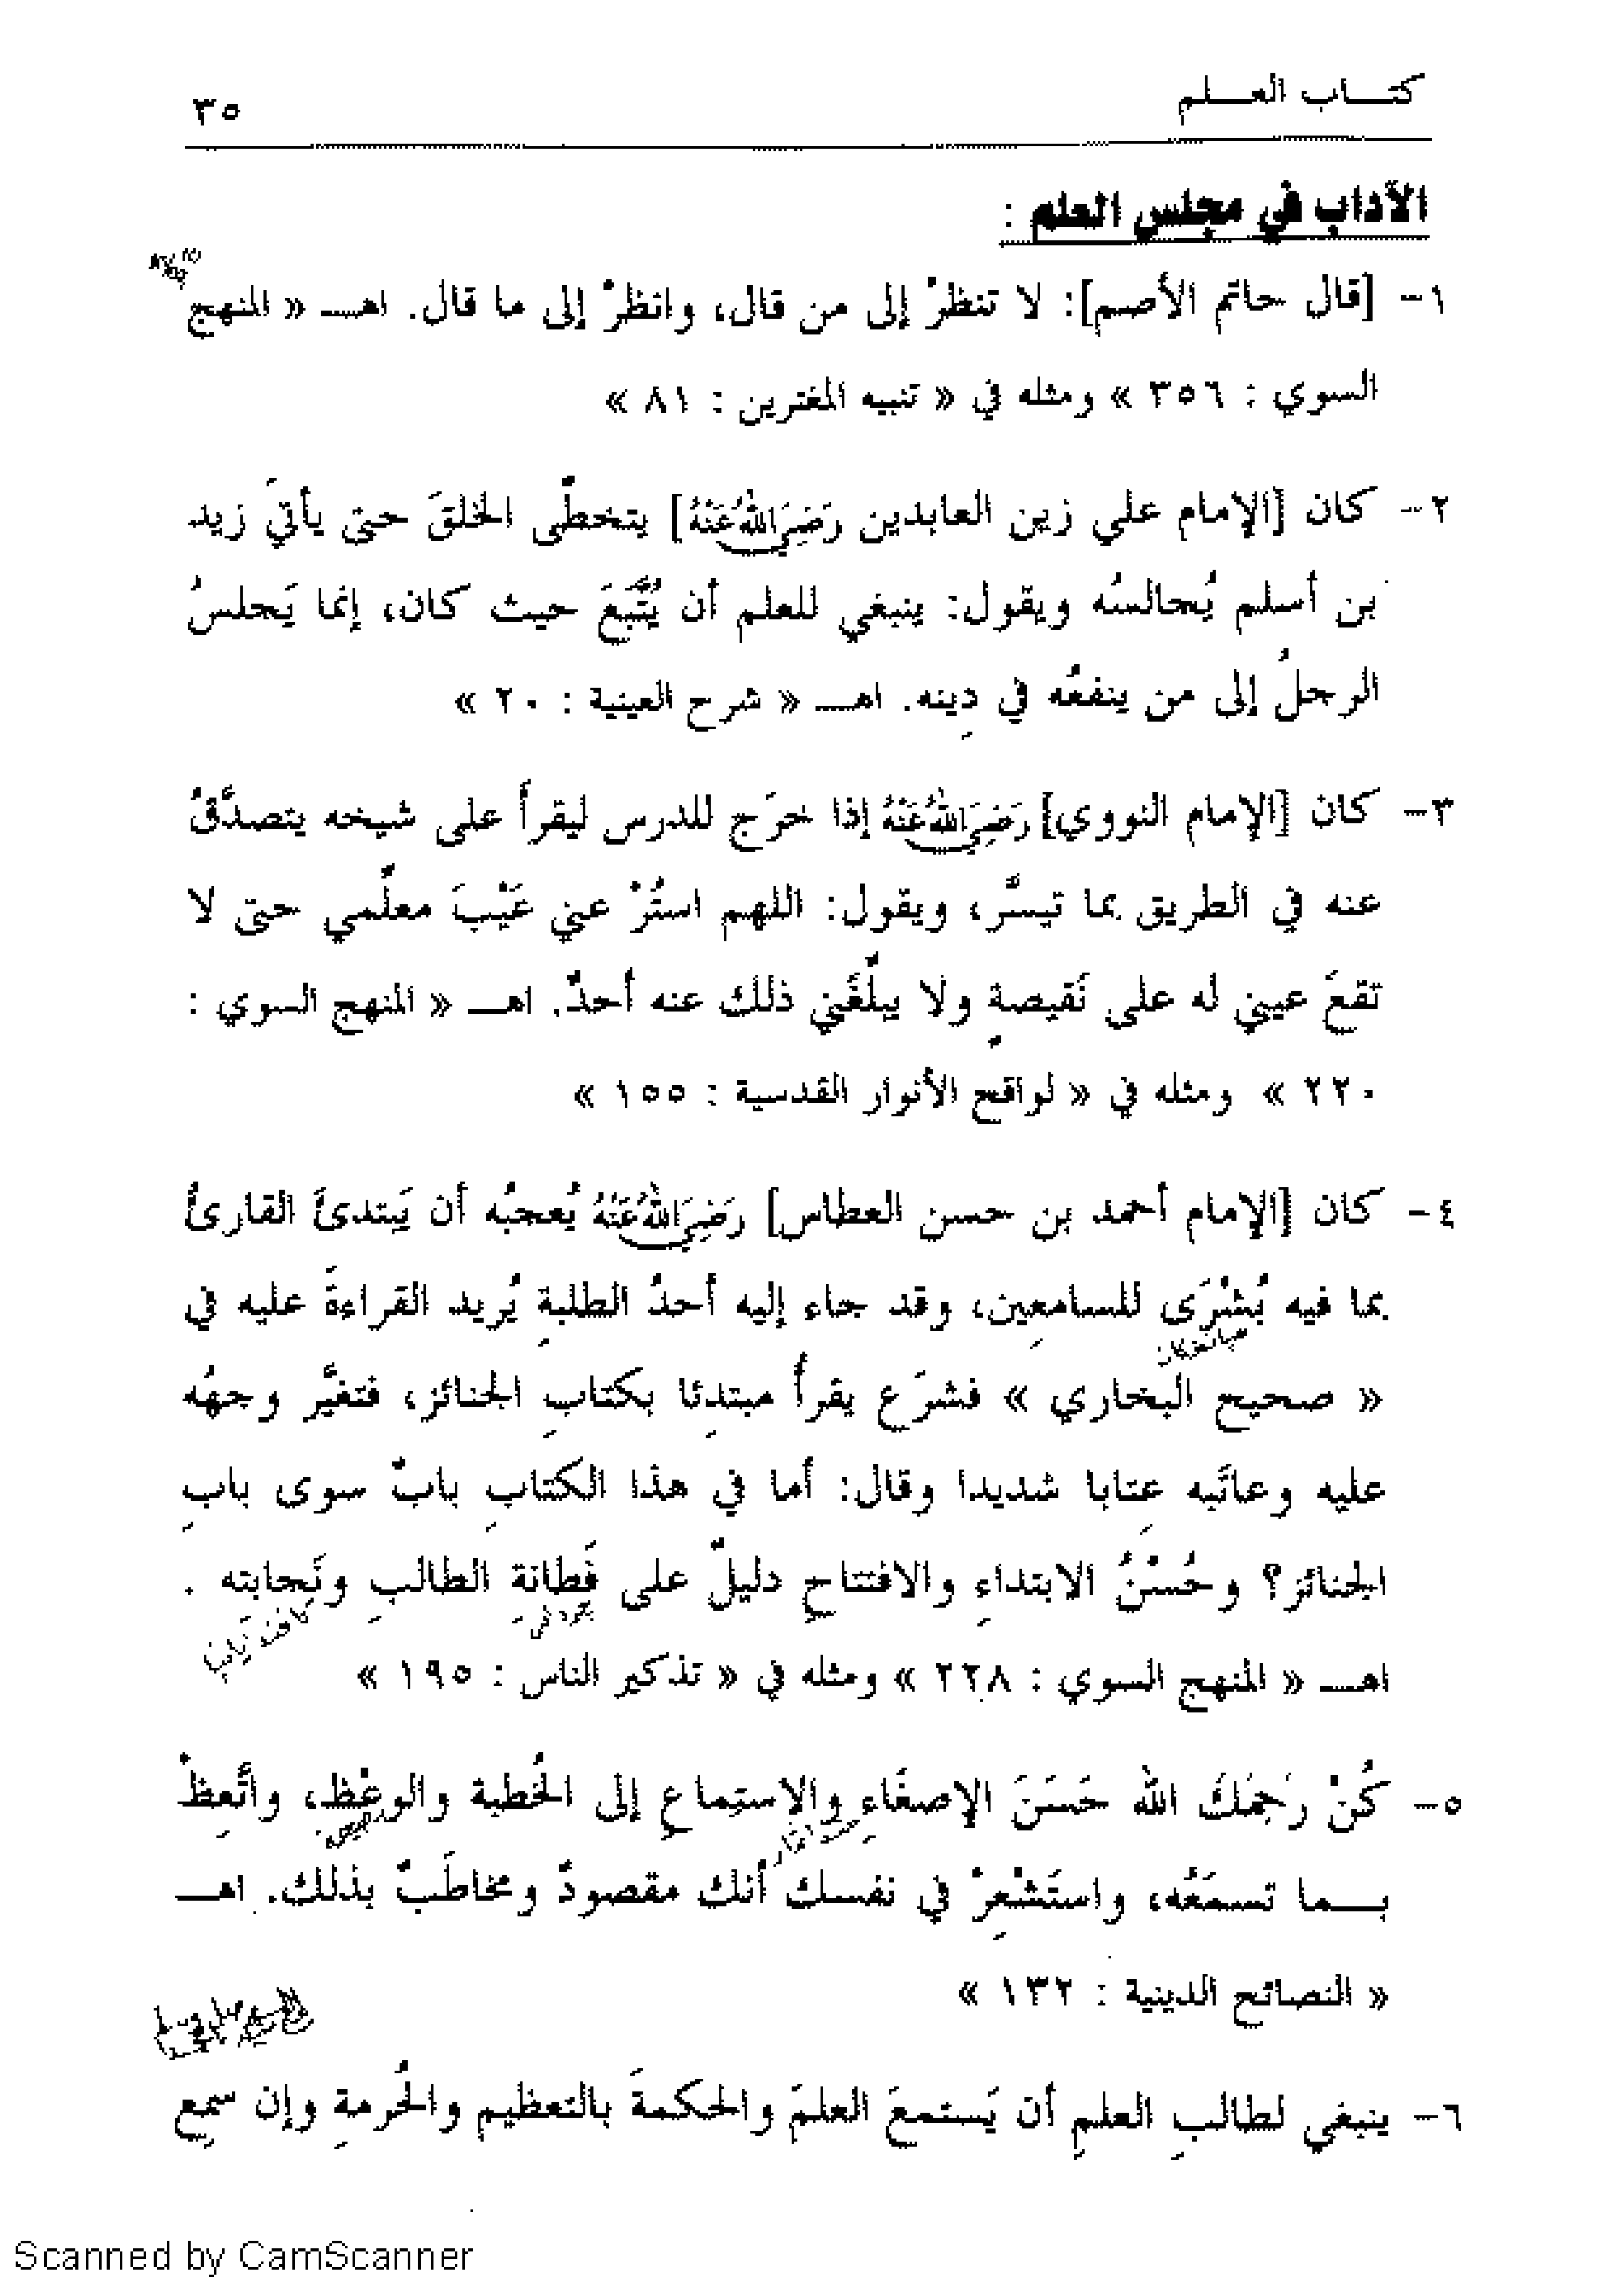 كتـــاب العـــلم
٣٥
الآداب في مجلس العلم :
١- [قال حاتم الأصم]: لا تنظرْ إلى من قال، وانظرْ إلى ما قال. اهـــ « المنهج
السوي : ٣٥٦ » ومثله في « تنبيه المغترين : ٨١ »
٢- كان [الإمام علي زين العابدين رَضِيَ اللهُ عَنْهُ] يتخطّى الخلقَ حتى يأتيَ زيد
بن أسلم يُجالسُه ويقول: ينبغي للعلم أن يُتَّبَعَ حيث كان، إنما يَجلسُ
الرجلُ إلى من ينفعُه في دِينه. اهـــ « شرح العينية : ٢٠ »
٣- كان [الإمام النووي] رَضِيَ اللهُ عَنْهُ إذا خرَج للدرس ليقرأَ على شيخه يتصدَّقُ
عنه في الطريق بما تيسَّر، ويقول: اللهم استُرْ عني عَيْبَ معلّمي حتى لا
تقعَ عيني له على نَقيصةٍ ولا يبلّغَني ذلك عنه أحدٌ. اهـــ « المنهج السوي :
٢٢٠ » ومثله في « لواقح الأنوار القدسية : ١٥٥ »
٤- كان [الإمام أحمد بن حسن العطاس] رَضِيَ اللهُ عَنْهُ يُعجبُه أن يَبتدئَ القارئُ
بما فيه بُشْرَى للسامعِين، وقد جاء إليه أحدُ الطلبةِ يُريد القراءةَ عليه في
« صحيح البخاري » فشرَع يقرأُ مبتدِئا بكتابِ الجنائز، فتغيَّر وجهُه
عليه وعاتَبه عِتابا شديدا وقال: أما في هذا الكتابِ بابٌ سوى بابِ
الجنائز؟ وحُسْنُ الابتداءِ والافتتاحِ دليلٌ على فَطانةِ الطالبِ ونَجابتِه .
اهـــ « المنهج السوي : ٢٢٨ » ومثله في « تذكير الناس : ١٩٥ »
٥- كُنْ رَحِمَكَ الله حَسَنَ الإصغَاءِ والاِستِماعِ إلى الخُطبة والوعْظِ، واتَّعِظْ
بـــما تسمَعُه، واستَشْعِرْ في نفسك أنك مقصودٌ ومخاطَبٌ بذلك. اهـــ
« النصائح الدينية : ١٣٢ »
٦- ينبغي لطالبِ العلمِ أن يَستمعَ العلمَ والحكمةَ بالتعظيم والحُرمةِ وإن سمِع
Scanned by CamScanner